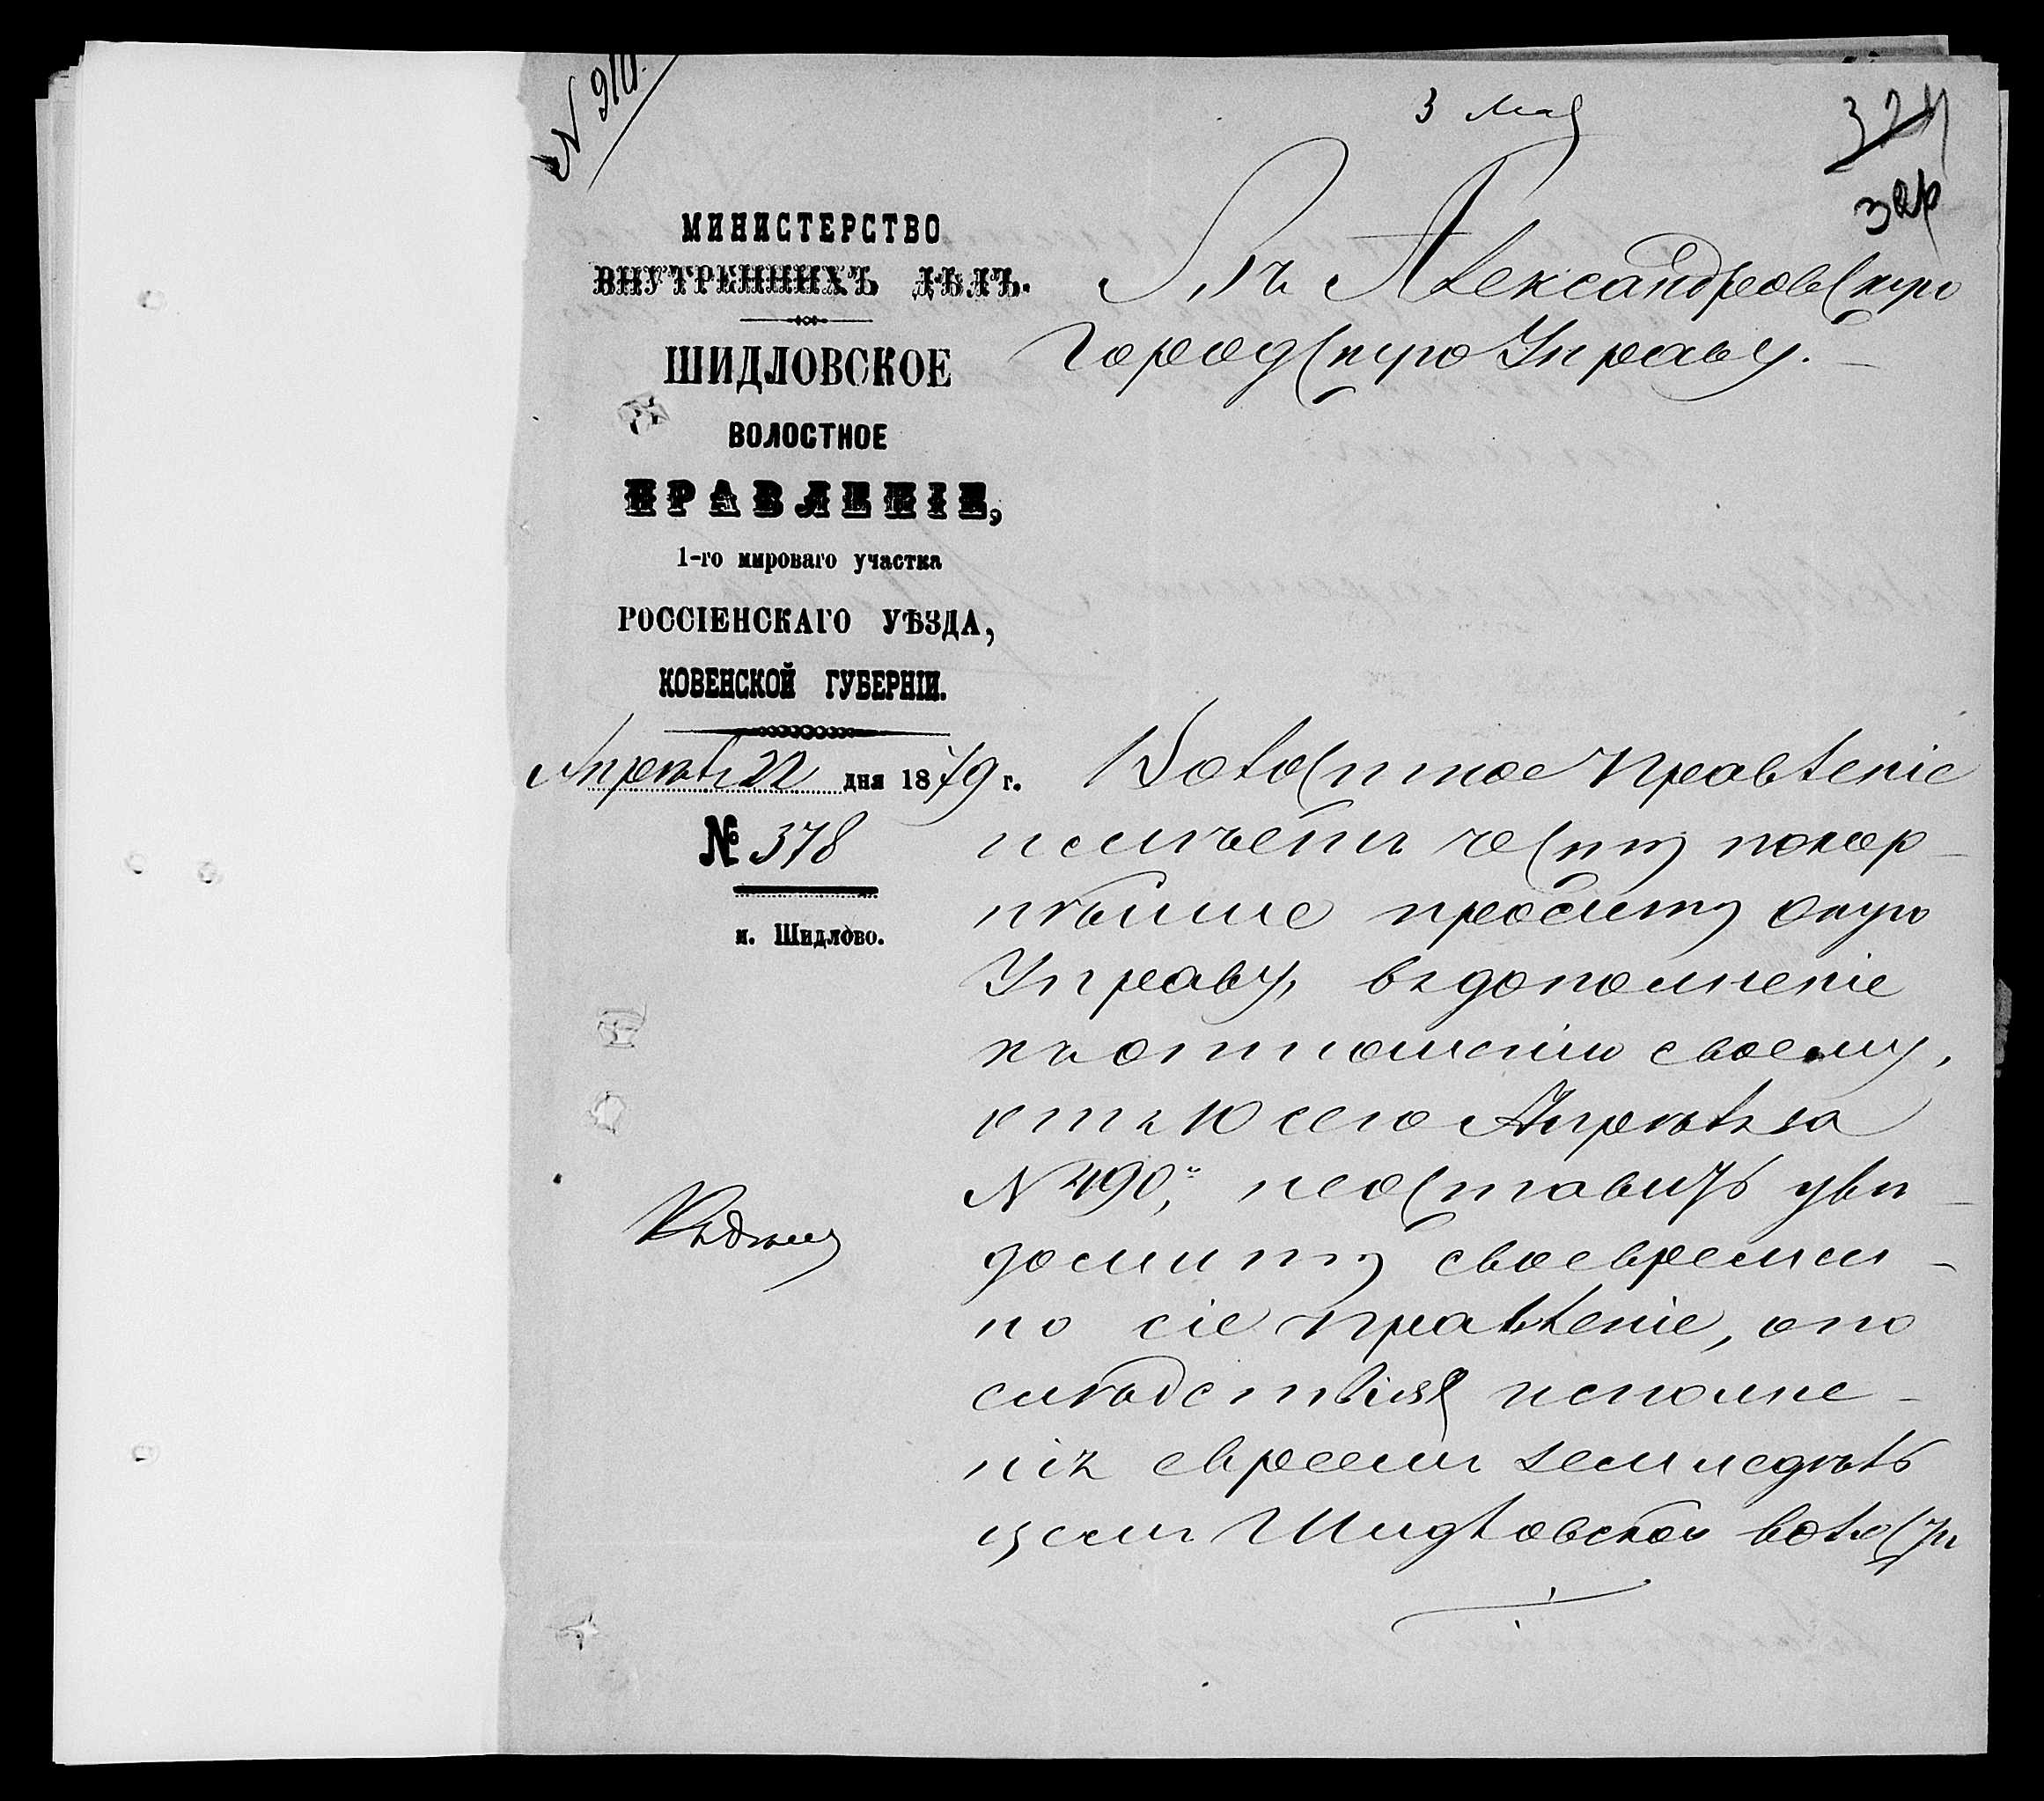 № 910.
3 Мая
324
МИНИСТЕРСТВО
ВНУТРЕННИХЪ ДѢЛЪ.
ШИДЛОВСКОЕ
ВОЛОСТНОЕ
ПРАВЛЕНІЕ,
1-го мироваго участка
РОССІЕНСКАГО УѢЗДА,
КОВЕНСКОЙ ГУБЕРНІИ.
Апрѣля 22 дня 1879 г.
№ 378
м. Шидлово.
Въ Александровскую
Городскую Управу.
Волостное Правленіе
имѣетъ честь покор-
нѣйше просить оную
Управу, въ дополненіе
къ отношенію своему,
отъ 10 сего Апрѣля за
№ 490, неоставить увѣ-
домить своевремен-
но сіе Правленіе, о по
слѣдствіяхъ исполне-
нія евреемъ земледѣль
цемъ Шидловской волости